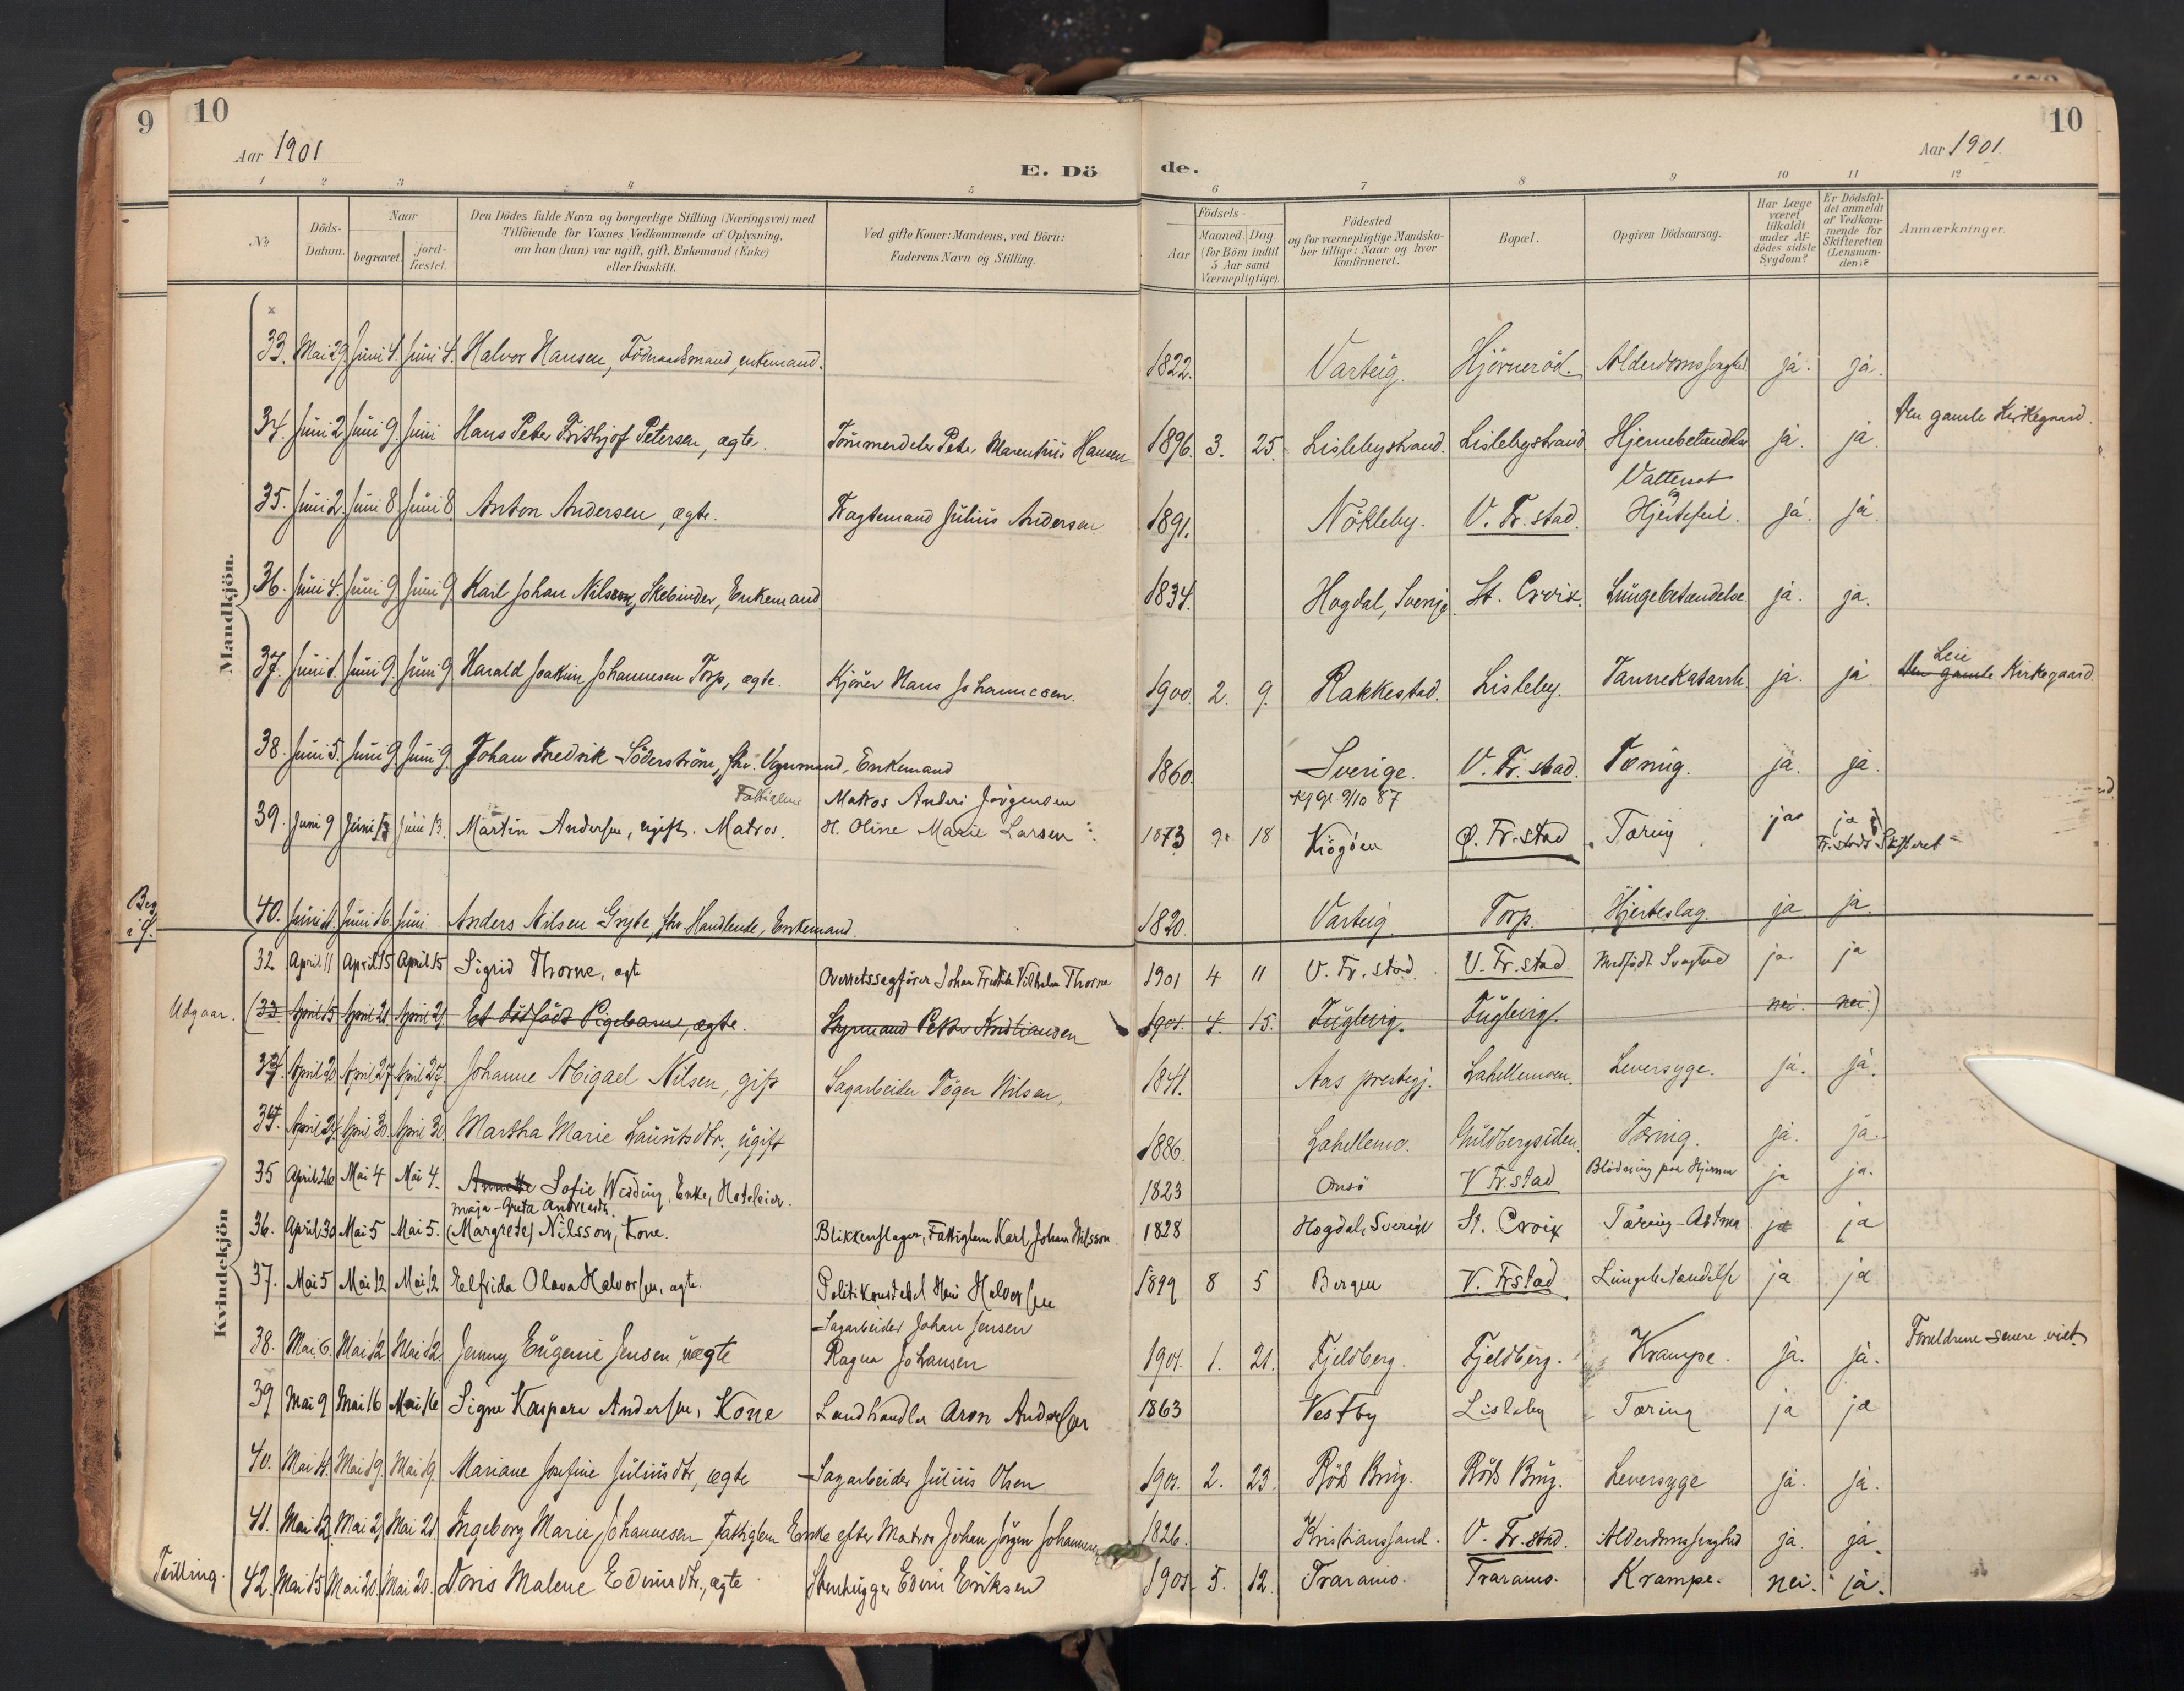 9
10
10
Aar 1901
Aar 1901.
E. Dö
de.
1 2 3 4 5 6 7 8 9 10 11 12
No
Döds-Datum.
Naar
begravet.
jord-fæstet.
Den Dödes fulde Navn og borgerlige Stilling (Næringsvei) med
Tilföiende for Voxnes Vedkommende af Oplysning,
om han (hun) var ugift, gift, Enkemand (Enke)
eller fraskilt.
Ved gifte Koner: Mandens, ved Börn:
Faderens Navn og Stilling.
Födsels-
Aar
Maaned.
Dag
(for Börn indtil
5 Aar samt
Værnepligtige).
Födested
og for værnepligtige Mandska-
ber tillige: Naar og hvor
konfirmeret.
Bopæl.
Opgiven Dödsaarsag.
Har Læge
været
tilkaldt
under Af-
dödes sidste
Sygdom?
Er Dödsfal-
det anmeldt
af Vedkom-
mende for
Skifteretten
(Lensman-
den)?
Anmærkninger.
Mandkjön.
33. Mai 29. Juni 4. Juni 4. Halvor Hansen, Föderaadsmand, enkemand. 1822. Varteig. Hjörneröd. Alderdomssvaghed ja. ja.
34. Juni 2 Juni 9. Juni Hans Peter Frithjof Petersen, ægte. Tömmerdeler Peter Marentius Hansen 1896. 3. 25. Lislebystrand. Lislebystrand. Hjernebetændelse ja. ja. Den gamle Kirkegaard.
35. Juni 2. Juni 8 Juni 8. Anton Andersen, ægte. Fragtemand Julius Andersen 1891. Nökleby. V. Fr.stad. Vattersot og Hjertefeil. ja. ja.
36. Juni 4. Juni 9 Juni 9. Karl Johan Nilsen, Skebinder, Enkemand 1834. Hogdal, Sverige. St. Croix. Lungebetændelse. ja. ja.
37. Juni Juni 9. Juni 9 Harald Joakim Johannesen Torp, ægte. Kjörer Hans Johannesen. 1900. 2. 9. Rakkestad. Lisleby. Tarmekatarrh ja. ja Leie
Den gamle Kirkegaard.
38. Juni 5. Juni 9. Juni 9. Johan Fredrik Söderström, fhv. Vognmand, Enkemand 1860. Sverige. V. Fr.stad. Tæring. ja. ja.
Fattiglem Matros Anders Jörgensen
39. Juni 9 Juni 13 Juni 13. Martin Andersen, ugift. Matros. H. Oline Marie Larsen 1873 9. 18 Kjögöen Ø. Fr.stad Tæring ja. ja
Fr.stads Skifteret
Beg
40. Juni Juni 16. Juni Anders Nilsen Gryte, fhv Handlende, Enkemand. 1820. Varteig. Torp. Hjerteslag. ja ja.
Kvindekjön
32 April 11 April 15 April 15 Sigrid Thorne, ægte Overretssagförer Johan Fredrik Vilhelm Thorne 1901 4 11 V. Fr.stad. V. Fr.stad Medfödt Svaghed ja. ja
Udgaar. (33. April 15 April 21 April 21 Et dödfödt Pigebarn, ægte. Styrmand Peter Kristiansen 1901. 4. 15. Fuglevig. Fuglevig. nei. nei.)
April 20 April 27 April 27. Johanne Abigael Nilsen, gift Sagarbeider Töger Nilsen, 1841. Aas prestegj. Lahellemoen. Leversyge. ja. ja.
April April 30 April 30 Martha Marie Lauritsdtr., ugift 1886. Lahellemo. Guldbergsiden. Tæring. ja. ja.
35 April 26 Mai 4 Mai 4. Annette Sofie Wesding, Enke, Hoteleier. 1823 Onsö V Fr.stad Blödning paa Hjernen ja ja.
Maja-Greta Andreasdtr.
36. April 30 Mai 5 Mai 5. (Margrete) Nilsson, Kone. Blikkenslager, Fattiglem Karl Johan Nilsson 1828 Hogdal, Sverige St. Croix Tæring-Astma ja ja
37. Mai 5 Mai 12 Mai 12 Elfrida Olava Halvorsen, ægte. Politikonstabel Hans Halvorsen 1899 8 5 Bergen V. Frstad Lungebetændelse ja ja
Sagarbeider Johan Jensen
38. Mai 6. Mai 12 Mai 12. Jenny Eugenie Jensen, uægte Ragna Johansen 1901. 1. 21. Fjeldberg. Fjeldberg. Krampe. ja. ja. Forældrene senere viet.
39 Mai 9 Mai 16 Mai 16 Signe Kaspara Andersen, Kone Landhandler Aron Andersen 1863 Vestby Lisleby Tæring ja ja
40. Mai Mai 19. Mai 19 Mariane Josefine Juliusdtr., ægte Sagarbeider Julius Olsen 1901. 2. 23. Röds Brug. Röds Brug. Leversyge ja. ja.
41. Mai 12. Mai 21 Mai 21 Ingeborg Marie Johannesen, Fattiglem Enke efter Matros Johan Jörgen Johannesen 1826. Kristianssand. V. Fr.stad. Alderdomssvaghed ja. ja.
Tvilling. 42. Mai 15 Mai 20. Mai 20. Doris Malene Edvinsdtr., ægte Stenhugger Edvin Eriksen 1901. 5. 12. Traramo. Traramo. Krampe. nei. ja.